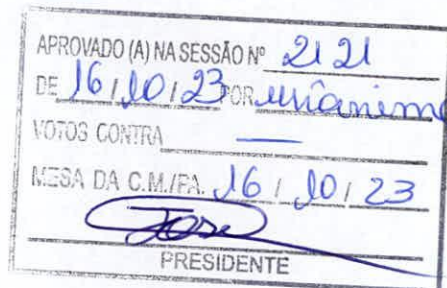 APROVADO (A) NA SESSÃO Nº 2121
DE 16 / 10 / 23 POR unânime
VOTOS CONTRA —
MESA DA C.M./FA. 16 / 10 / 23
PRESIDENTE